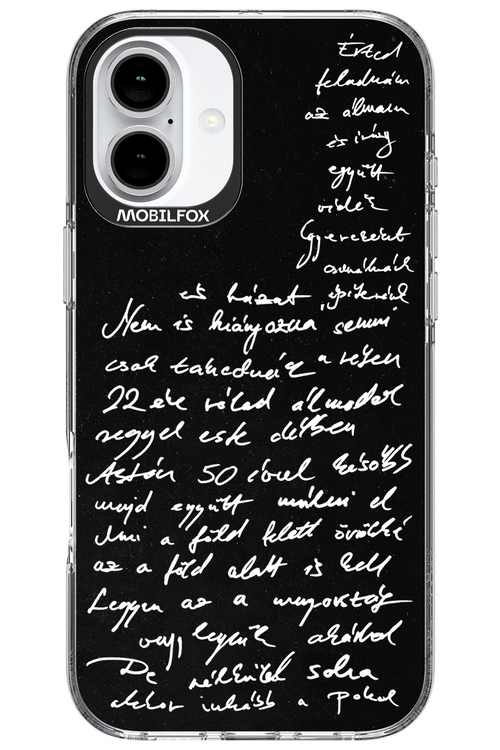 MOBILFOX
Érted
feladnám
az álmaim
és így
együtt
vidék
Gyereket
csinálnánk
és házat építenék
Nem is hiányozna semmi
csak takednék a réten
22 éve rólad álmodok
reggel este délben
Aztán 50 évvel később
majd együtt múlni el
Ami a föld felett örökké
az a föld alatt is kell
Legyen az a mennyország
vagy legyünk akárhol
De nélküled soha
akkor inkább a Pokol